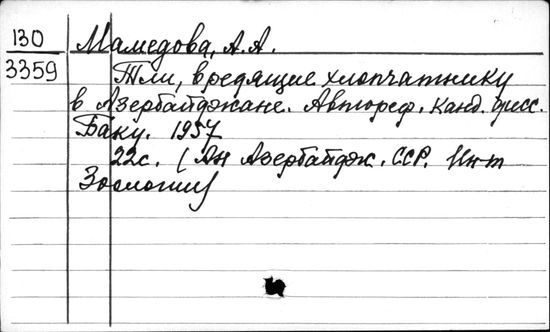 130 Мамедова, А.А.
3359 Тли, вредящие хлопчатнику
в Азербайджане. Автореф. канд. дисс.
Баку. 1957
22с. (Ан Азербайдж. ССР. Ин-т
Зоологии)